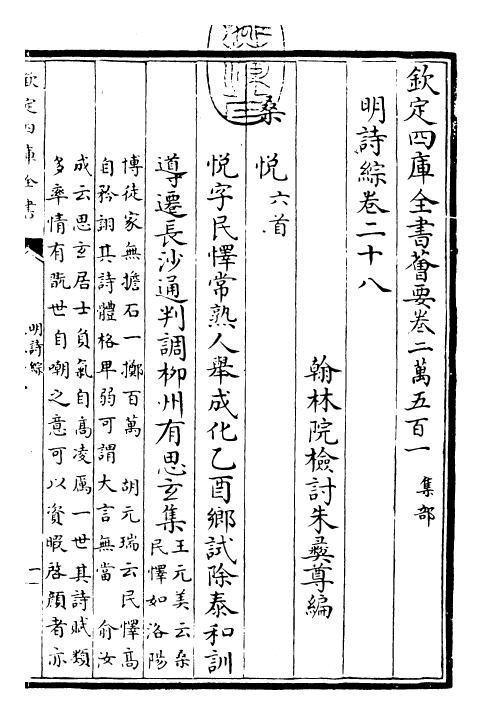 欽定四庫全書薈要卷二萬五百一 集部
明詩綜卷二十八
翰林院檢討朱彝尊編
桑悅六首
悅字民懌常熟人舉成化乙酉鄉試除泰和訓
導遷長沙通判調柳州有思玄集
王元美云桑
民懌如洛陽
博徒家無擔石一擲百萬 胡元瑞云民懌高
自矜詡其詩體格卑弱可謂大言無當 俞汝
成云思玄居士負氣自高凌厲一世其詩賦類
多率情有翫世自嘲之意可以資暇啓顏者亦
欽定四庫全書
明詩綜
一